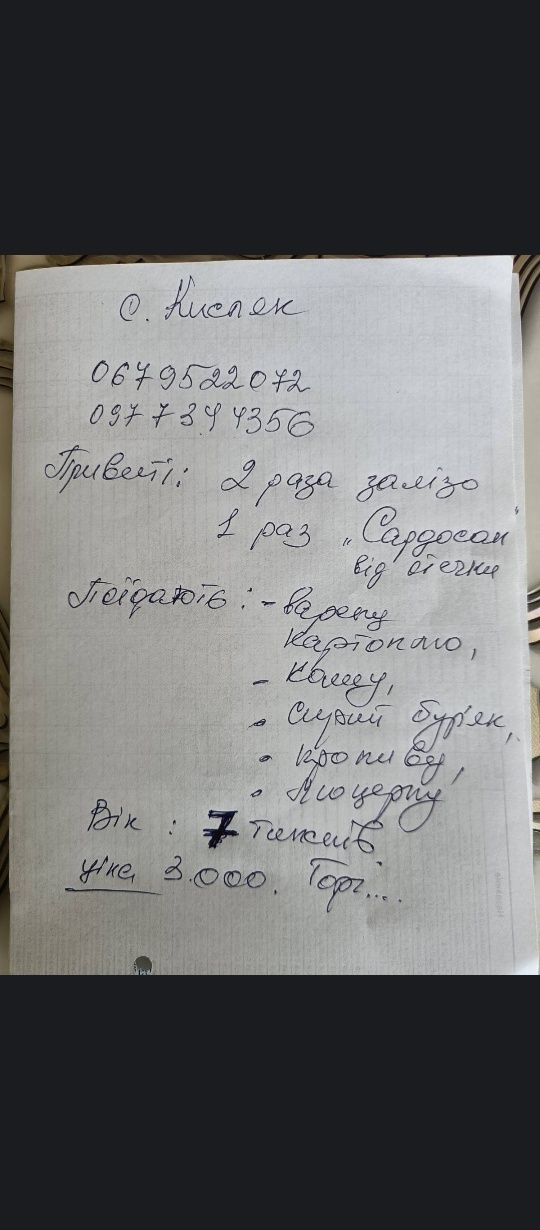 с. Кисляк
0679522072
0977344356
Привиті: 2 раза залізо
1 раз "Сардосан"
від отечки
Поїдають: - варену
картоплю,
- кашу,
• сирий буряк,
• кропиву,
• люцерну
Вік : 7 тижнів.
ціна 3.000. Торг....